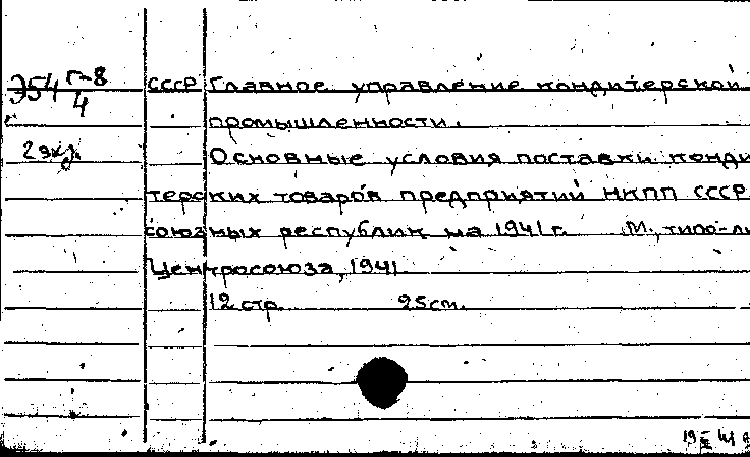 Э54 Г-8/4 СССР Главное управление кондитерской
промышленности.
2 экз. Основные условия поставки конди
терских товаров предприятий НКПП СССР
союзных республик на 1941 г. М., типо-ли
Центросоюза, 1941.
12 стр. 25 см.
19